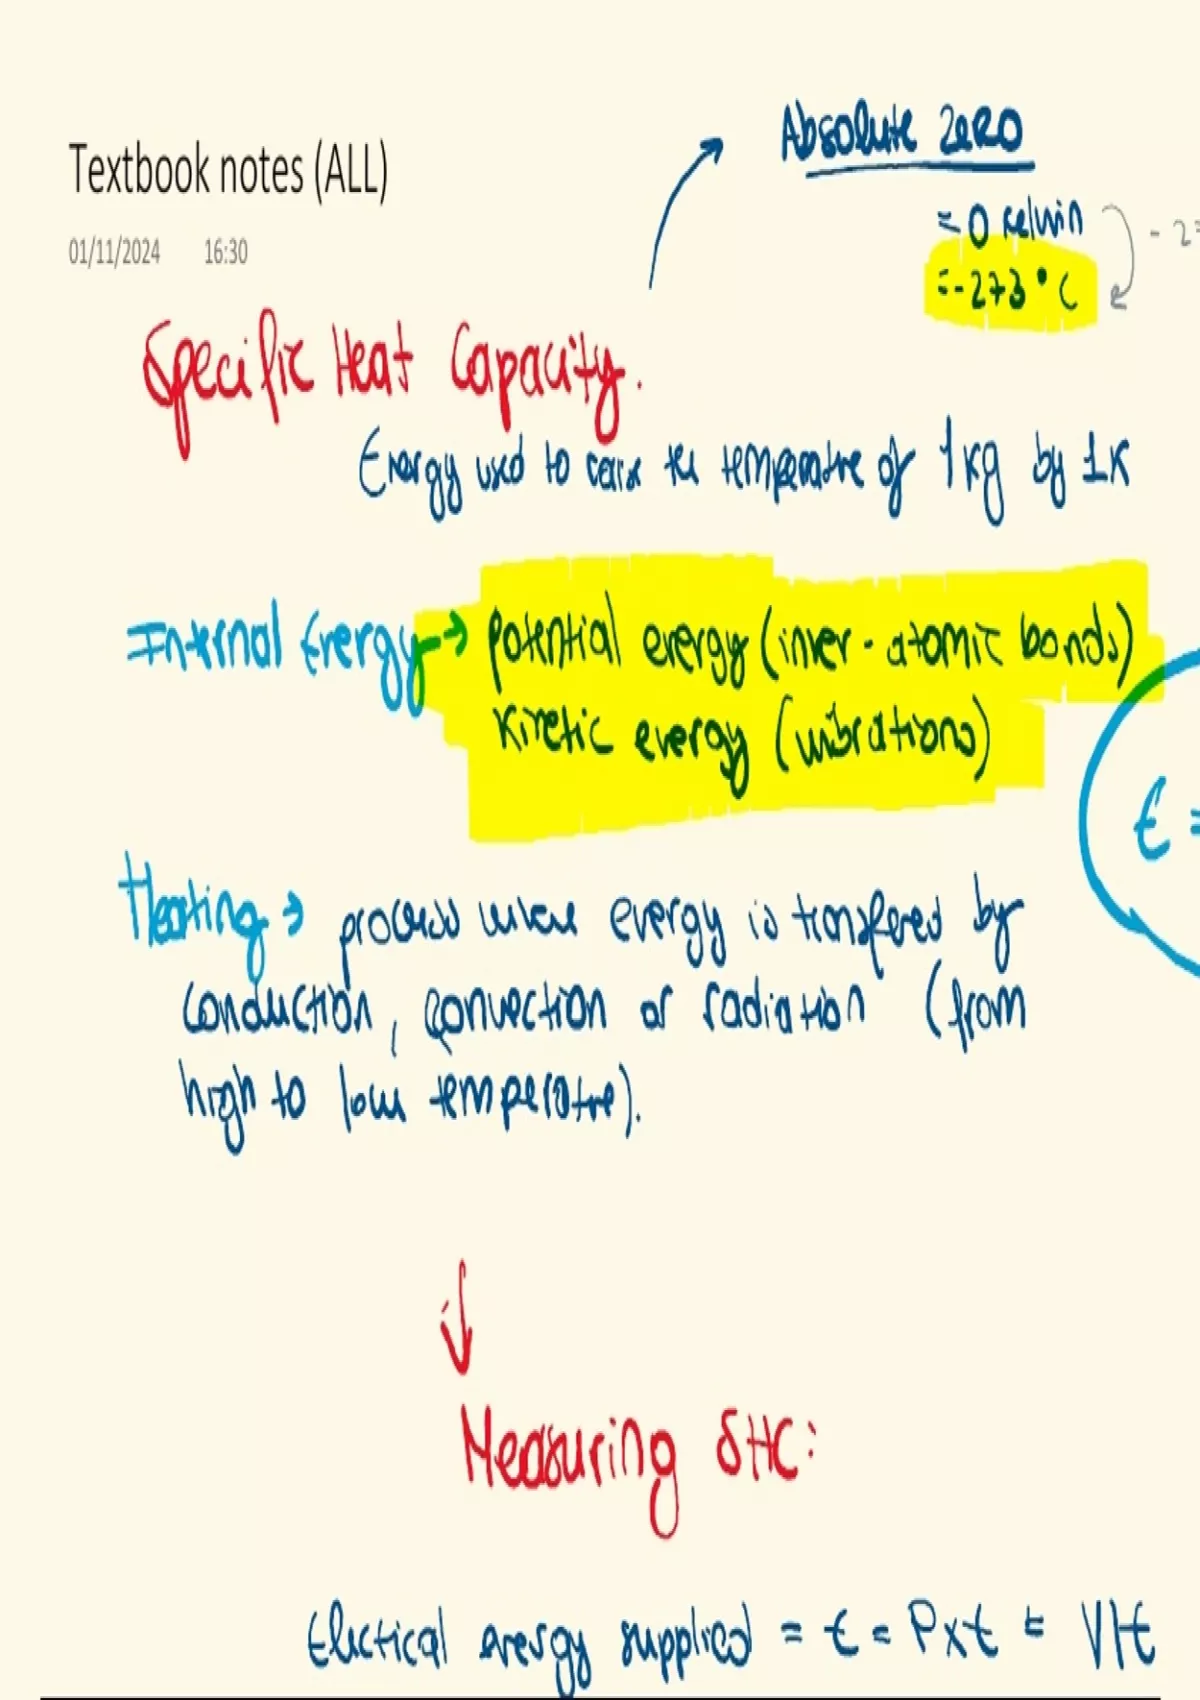 Textbook notes (ALL)
01/11/2024 16:30
Absolute zero
= 0 kelvin
= -273°C
- 27
Specific Heat Capacity.
Energy used to raise the temperature of 1kg by 1K
Internal Energy → potential energy (inter-atomic bonds)
Kinetic energy (vibrations)
E =
Heating → process where energy is transfered by
conduction, convection or radiation (from
high to low temperature).
↓
Measuring SHC:
Electical energy supplied = E = P×t = VIt